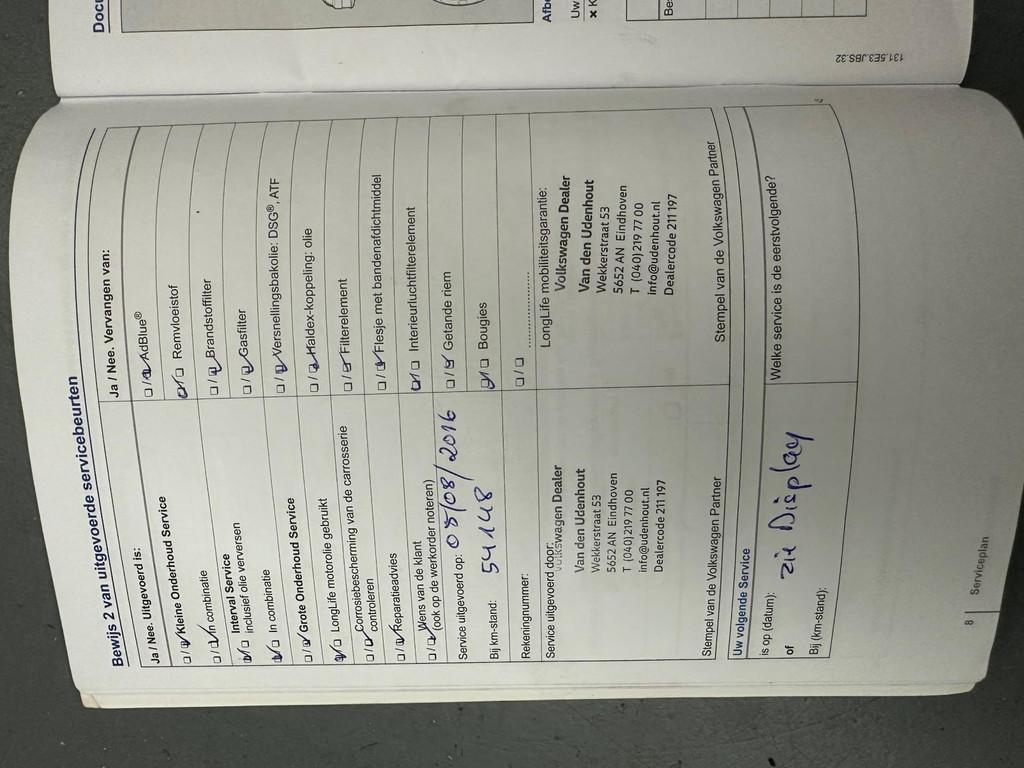 Bewijs 2 van uitgevoerde servicebeurten
Ja / Nee. Uitgevoerd is:
Kleine Onderhoud Service
In combinatie
Interval Service
inclusief olie verversen
In combinatie
Grote Onderhoud Service
LongLife motorolie gebruikt
Corrosiebescherming van de carrosserie
controleren
Reparatieadvies
Wens van de klant
(ook op de werkorder noteren)
Service uitgevoerd op: 05/08/2016
Bij km-stand: 54148
Rekeningnummer:
Ja / Nee. Vervangen van:
AdBlue®
Remvloeistof
Brandstoffilter
Gasfilter
Versnellingsbakolie: DSG®, ATF
Haldex-koppeling: olie
Filterelement
Flesje met bandenafdichtmiddel
Interieurluchtfilterelement
Getande riem
Bougies
Service uitgevoerd door:
Volkswagen Dealer
Van den Udenhout
Wekkerstraat 53
5652 AN Eindhoven
T (040) 219 77 00
info@udenhout.nl
Dealercode 211 197
Stempel van de Volkswagen Partner
LongLife mobiliteitsgarantie:
Volkswagen Dealer
Van den Udenhout
Wekkerstraat 53
5652 AN Eindhoven
T (040) 219 77 00
info@udenhout.nl
Dealercode 211 197
Stempel van de Volkswagen Partner
Uw volgende Service
is op (datum): zie Display
of
Bij (km-stand):
Welke service is de eerstvolgende?
8 | Serviceplan
131.5E3.JBS.32
Uw